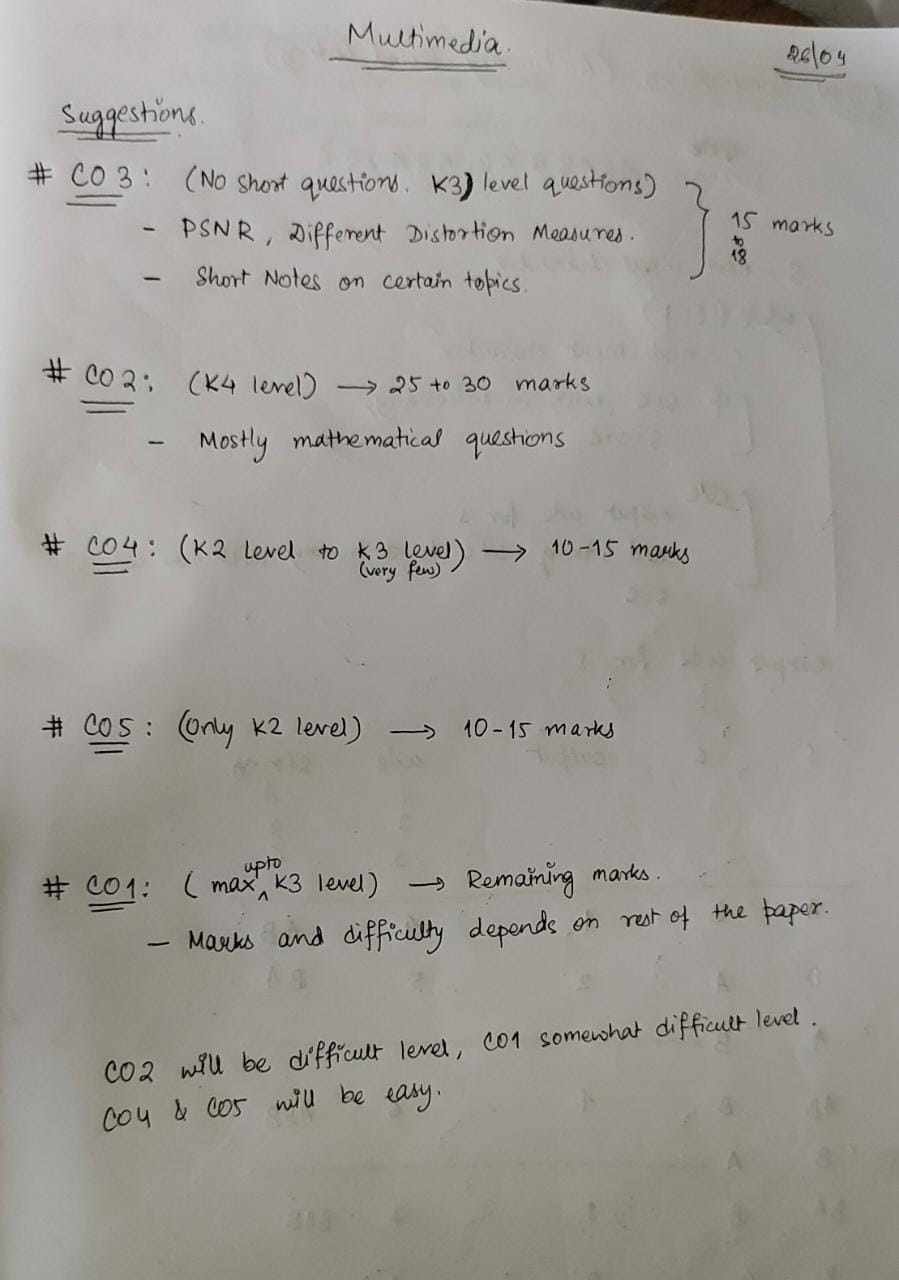 Multimedia.
26/04
Suggestions.
# CO3: (No short questions. K3) level questions)
- PSNR, Different Distortion Measures.
- Short Notes on certain topics.
15 marks
to
18
# CO2: (K4 level) → 25 to 30 marks
- Mostly mathematical questions
# CO4: (K2 Level to K3 level) → 10-15 marks
(very few)
# CO5: (Only K2 level) → 10-15 marks
# CO1: (max upto K3 level) → Remaining marks.
- Marks and difficulty depends on rest of the paper.
CO2 will be difficult level, CO1 somewhat difficult level.
CO4 & CO5 will be easy.